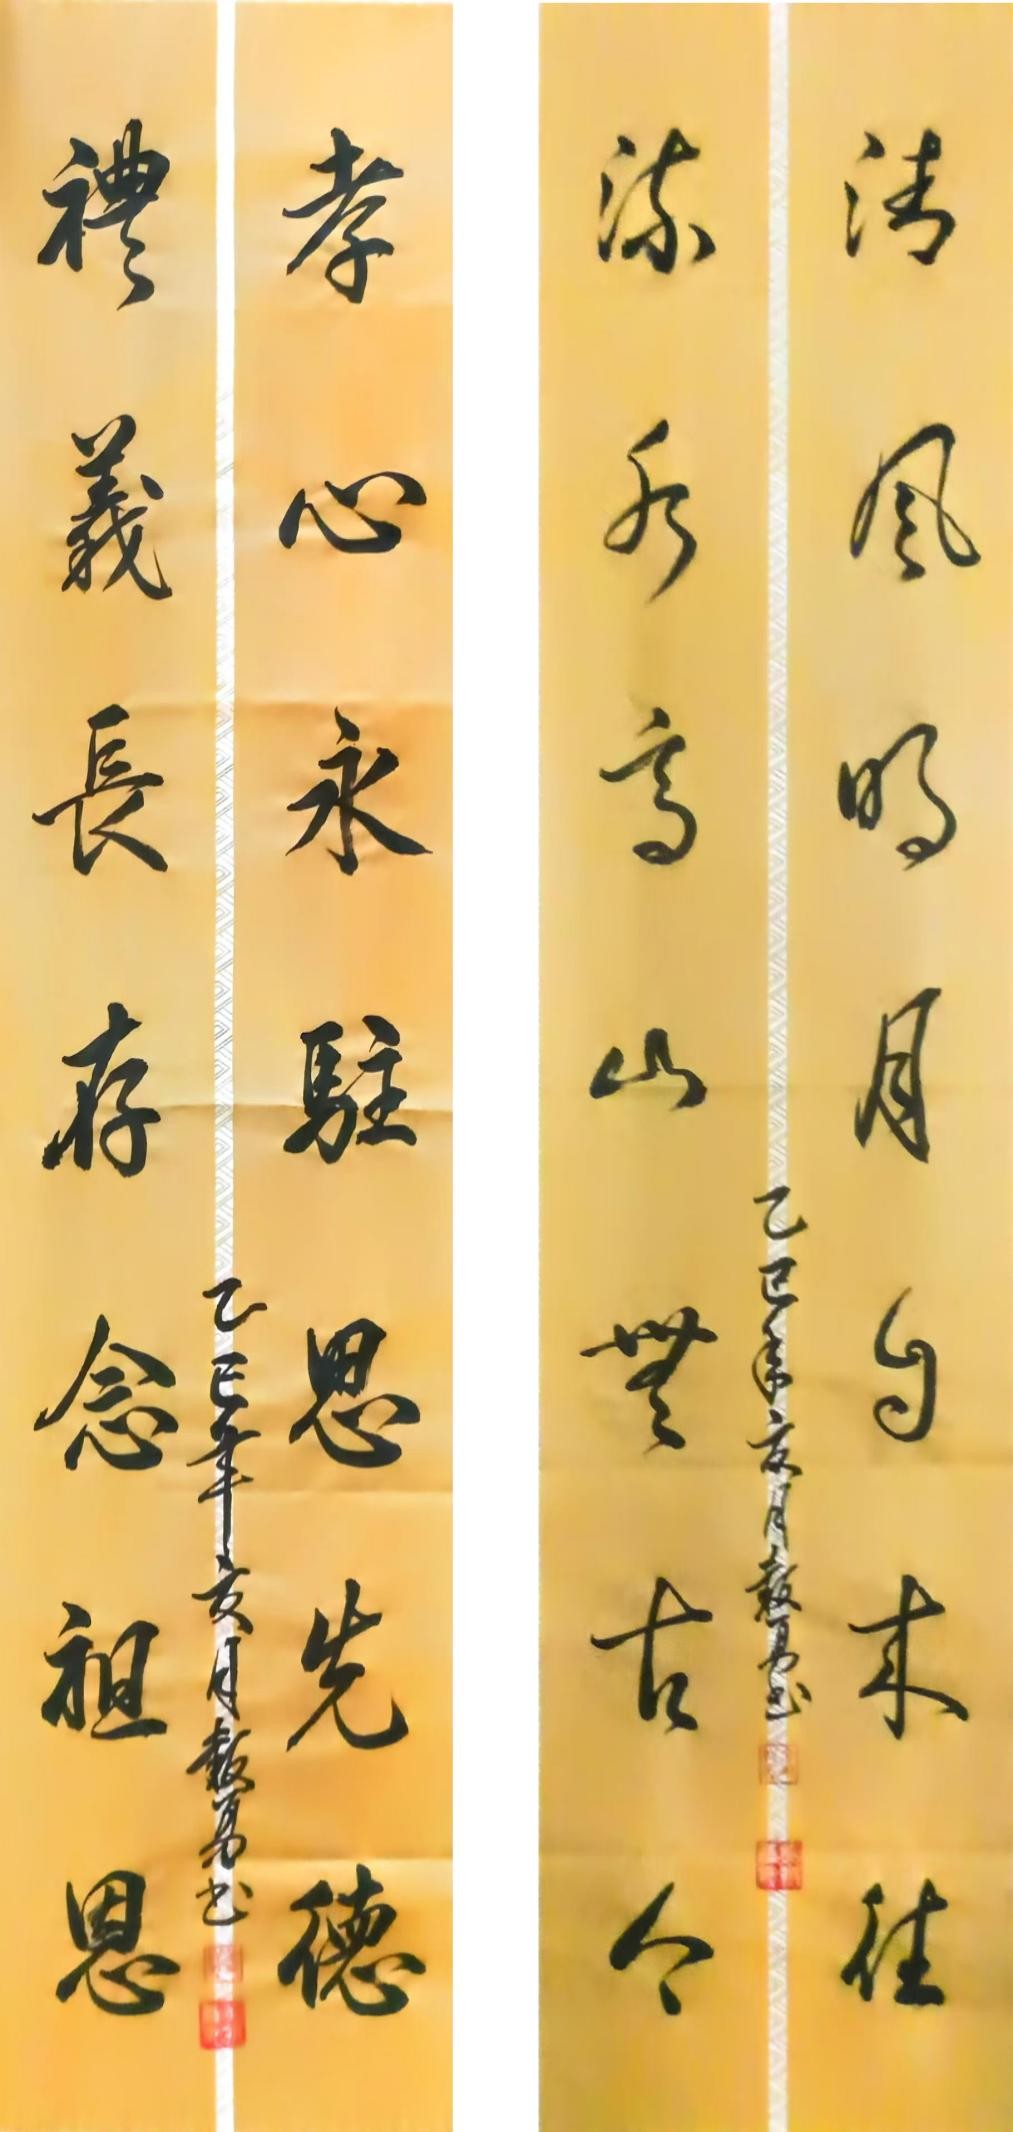 清風明月自來往
流水高山無古今
乙巳年亥月毅勇书
孝心永駐思先德
禮義長存念祖恩
乙巳年亥月毅勇书